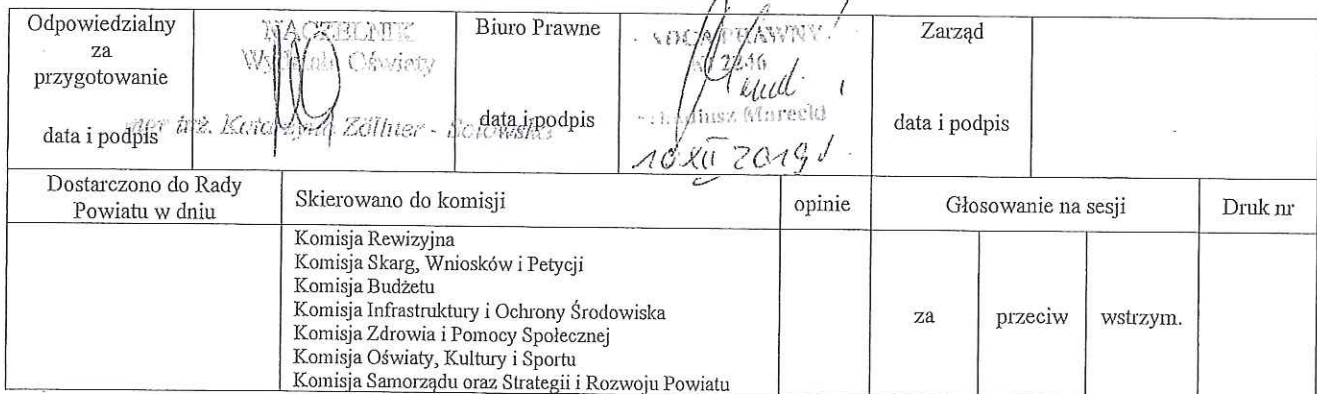 Odpowiedzialny
za
przygotowanie
data i podpis
NACZELNIK
Wydziału Oświaty
mgr inż. Katarzyna Zöllner - Sołowska
Biuro Prawne
data i podpis
RADCA PRAWNY
Marecki
10 XII 2019 r.
Zarząd
data i podpis
Dostarczono do Rady
Powiatu w dniu
Skierowano do komisji
opinie
Głosowanie na sesji
Druk nr
Komisja Rewizyjna
Komisja Skarg, Wniosków i Petycji
Komisja Budżetu
Komisja Infrastruktury i Ochrony Środowiska
Komisja Zdrowia i Pomocy Społecznej
Komisja Oświaty, Kultury i Sportu
Komisja Samorządu oraz Strategii i Rozwoju Powiatu
za
przeciw
wstrzym.